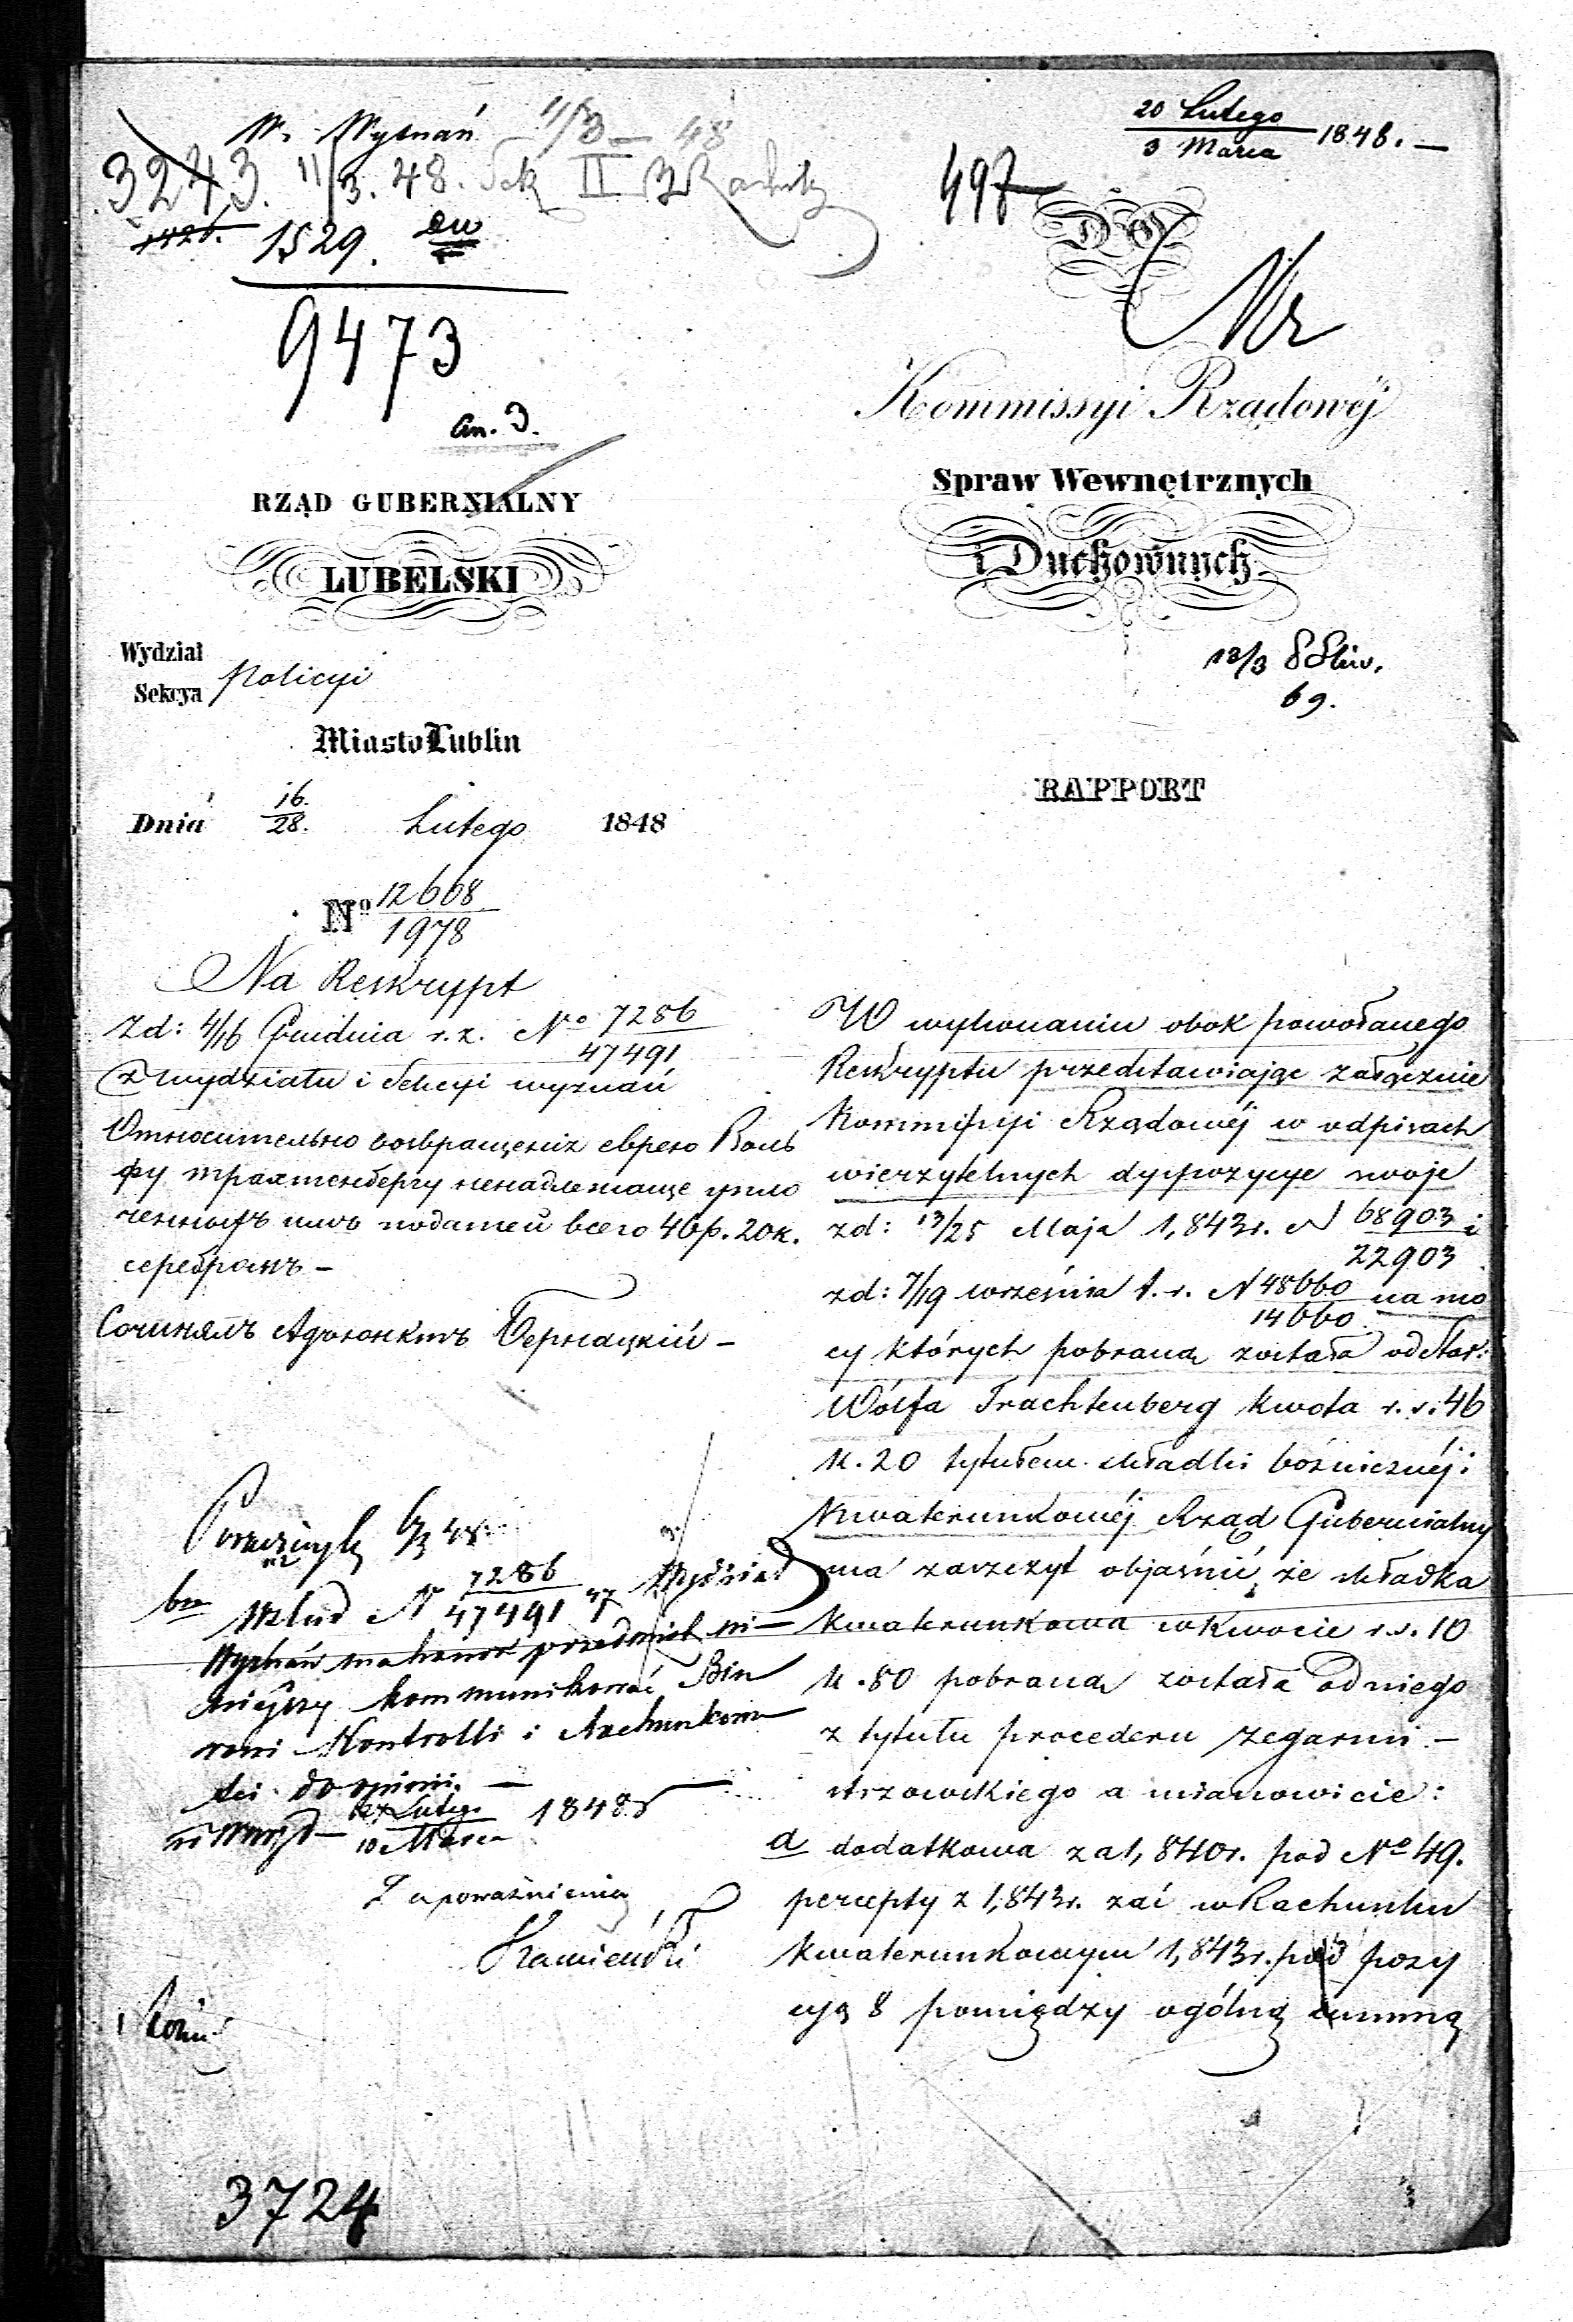 W. Wyznań 11/3 — 48
20 Lutego
3 Marca 1848. —
3243. 11/3. 48. Sek II
497
1529.
9473
an. 3.
Do
Kommissyi Rządowéj
Spraw Wewnętrznych
i Duchownych
RZĄD GUBERNIALNY
LUBELSKI
Wydział
Sekcya Policyi
13/3
69.
Miasto Lublin
RAPPORT
Dnia 16./28. Lutego 1848
No 12668/1978
Na Reskrypt
zd: 4/16 Grudnia r. z. No 7286/47491
z wydziału i Sekcyi wyznań
Относительно возвращенія еврею Воль
фу Трахтенбергу ненадлежаще упло
ченныхъ имъ податей всего 46 р. 20 к.
серебромъ —
Сочинялъ Адъюнктъ Бернацкій —
W wykonaniu obok powołanego
Reskryptu przedstawiając załącznie
Kommissyi Rządowéj w odpisach
wierzytelnych dyspozycye swoje
zd: 13/25 Maja 1,843 r. N 68903/22903 i
zd: 7/19 września t. r. N 48660/14660 na mo
cy których pobraną została od Star:
Wolfa Trachtenberg kwota r. s. 46
k. 20 tytułem składki bóżnicznéj i
Kwaterunkowéj Rząd Gubernialny
ma zaszczyt objaśnić, że składka
kwaterunkowa w kwocie r. s. 10
k. 80 pobraną została od niego
z tytułu procederu zegarmi —
strzowskiego a mianowicie:
a dodatkowa za 1,840 r. pod No 49.
percepty z 1,843 r. zaś w Rachunku
kwaterunkowym 1,843 r. pod pozy
cyą 8 pomiędzy ogólną summą
48
wskład N 7286/47491 47 Wydział
Wyznań ma honor przedmiot ni —
niejszy kommunikować Biu
rowi Kontrolli i Rachunkowo
ści do opinii. —
Lutego
10 Marca 1848 r
Z upoważnienia
3724